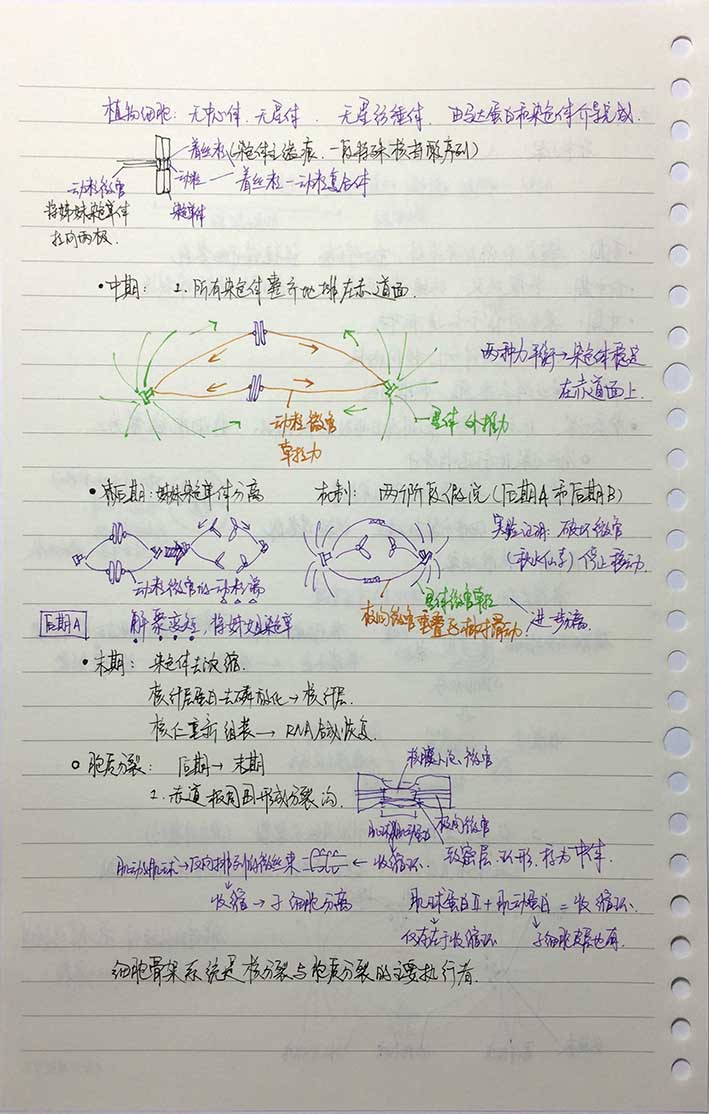 植物细胞：无中心体、无星体、无星纺锤体，由马达蛋白和染色体介导完成.
着丝粒(染色体主缢痕，一段特殊核苷酸序列)
动粒 — 着丝粒—动粒复合体
染色单体
动粒微管
将姊妹染色单体
拉向两极.
• 中期： 1. 所有染色体整齐地排在赤道面.
两种力平衡→染色体稳定
在赤道面上.
动粒微管
牵拉力
星体 外推力
• 后期：姊妹染色单体分离 机制： 两个阶段假说(后期A和后期B)
实验证明：破坏微管
(秋水仙素) 停止移动.
动粒微管的动粒端
星体微管牵拉
极间微管重叠区相对滑动.
进一步分离.
后期A
解聚变短，将姊妹染色单
• 末期： 染色体去浓缩.
核纤层蛋白去磷酸化→核纤层.
核仁重新组装→RNA合成恢复.
○ 胞质分裂： 后期→末期
1. 赤道板周围形成分裂沟.
核膜小泡、微管
极间微管
肌动&肌球→反向排列的微丝束
← 收缩环. 致密层、环形，称为中体.
收缩→子细胞分离
肌球蛋白Ⅱ+肌动蛋白=收缩环.
仅存在于收缩环
子细胞皮层也有.
细胞骨架系统是核分裂与胞质分裂的主要执行者.